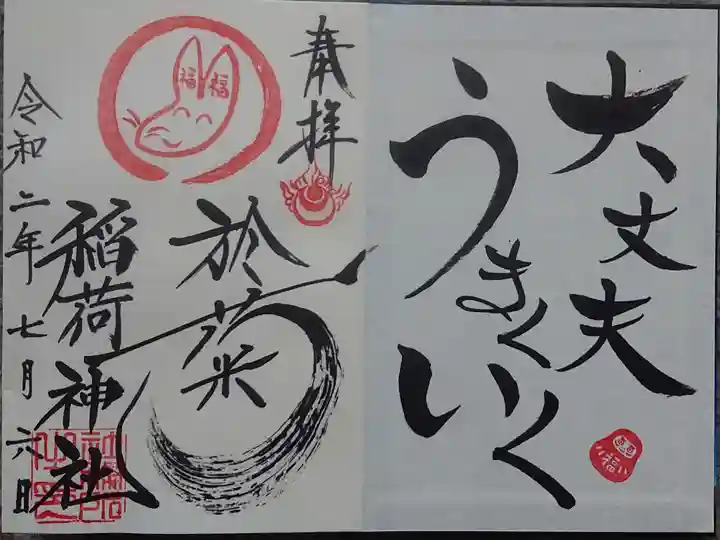 大丈夫
うまくいく
い
福
奉拝
於菊
稲荷神社
令和二年七月六日
福福